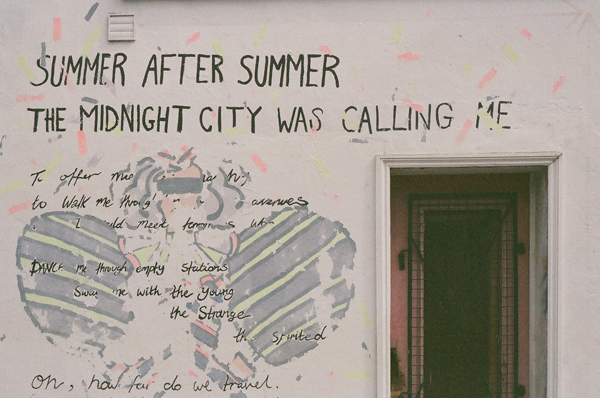 SUMMER AFTER SUMMER
THE MIDNIGHT CITY WAS CALLING ME
To offer me
to walk me avenues
I meet
DANCE me through empty stations
me with the young
the Strange
the spirited
Oh, how far do we travel.